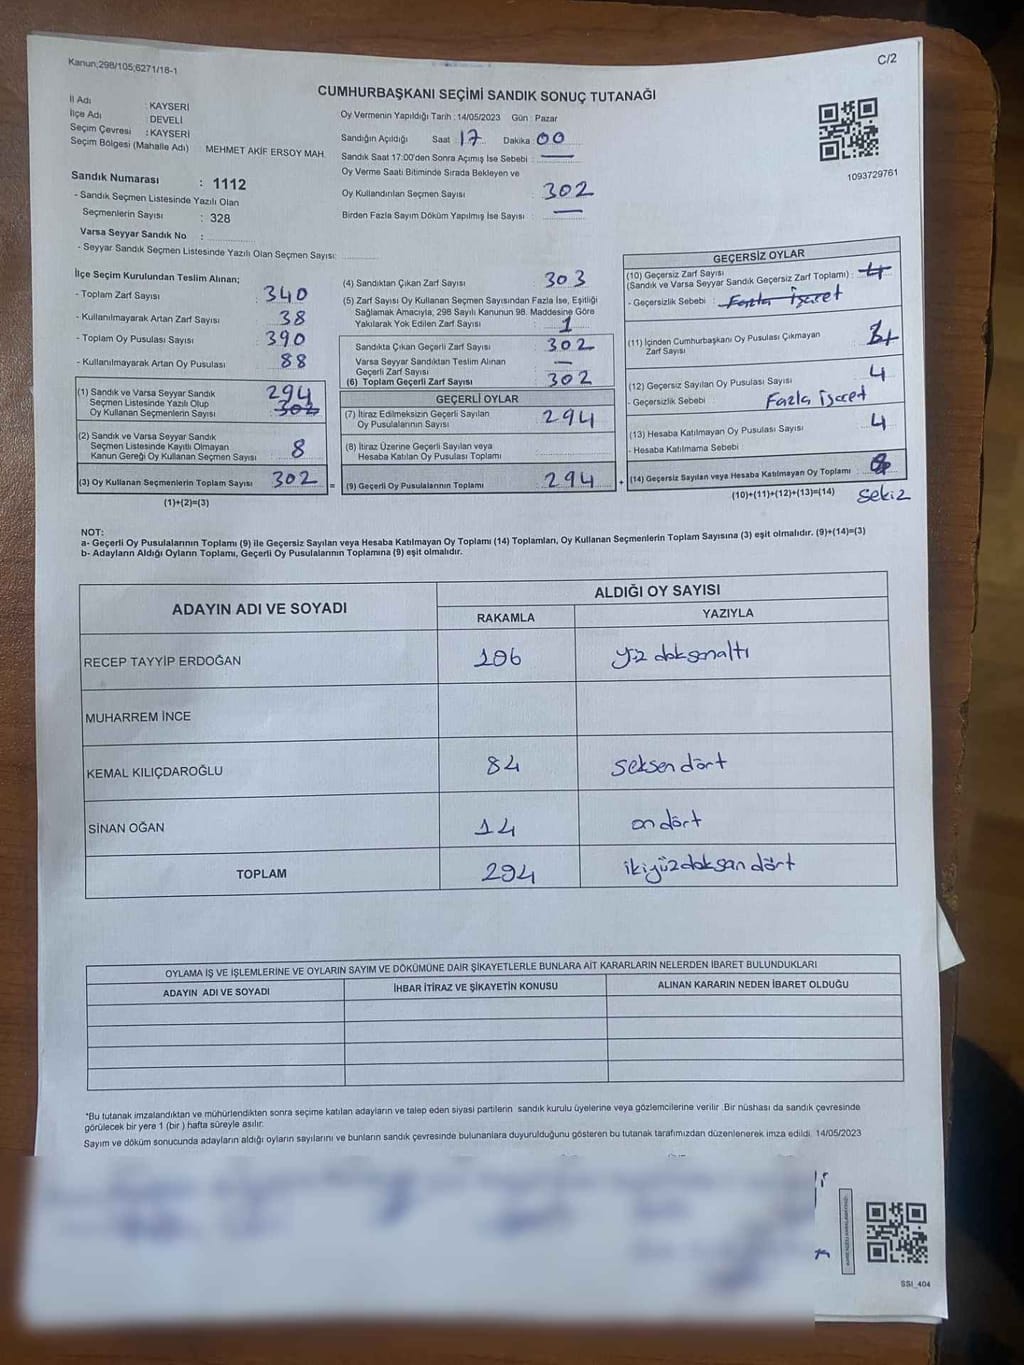 Kanun;298/105;6271/18-1
C/2
CUMHURBAŞKANI SEÇİMİ SANDIK SONUÇ TUTANAĞI
İl Adı : KAYSERİ
İlçe Adı : DEVELİ
Seçim Çevresi : KAYSERİ
Seçim Bölgesi (Mahalle Adı) : MEHMET AKİF ERSOY MAH.
Sandık Numarası : 1112
- Sandık Seçmen Listesinde Yazılı Olan
Seçmenlerin Sayısı : 328
Varsa Seyyar Sandık No :
- Seyyar Sandık Seçmen Listesinde Yazılı Olan Seçmen Sayısı:
Oy Vermenin Yapıldığı Tarih : 14/05/2023 Gün : Pazar
Sandığın Açıldığı Saat 17 Dakika 00
Sandık Saat 17:00'den Sonra Açımış İse Sebebi : —
Oy Verme Saati Bitiminde Sırada Bekleyen ve
Oy Kullandırılan Seçmen Sayısı : 302
Birden Fazla Sayım Döküm Yapılmış İse Sayısı : —
1093729761
İlçe Seçim Kurulundan Teslim Alınan;
- Toplam Zarf Sayısı : 340
- Kullanılmayarak Artan Zarf Sayısı : 38
- Toplam Oy Pusulası Sayısı : 390
- Kullanılmayarak Artan Oy Pusulası : 88
(1) Sandık ve Varsa Seyyar Sandık
Seçmen Listesinde Yazılı Olup
Oy Kullanan Seçmenlerin Sayısı : 294 302
(2) Sandık ve Varsa Seyyar Sandık
Seçmen Listesinde Kayıtlı Olmayan
Kanun Gereği Oy Kullanan Seçmen Sayısı : 8
(3) Oy Kullanan Seçmenlerin Toplam Sayısı : 302 =
(1)+(2)=(3)
(4) Sandıktan Çıkan Zarf Sayısı : 303
(5) Zarf Sayısı Oy Kullanan Seçmen Sayısından Fazla İse, Eşitliği
Sağlamak Amacıyla, 298 Sayılı Kanunun 98. Maddesine Göre
Yakılarak Yok Edilen Zarf Sayısı : 1
Sandıkta Çıkan Geçerli Zarf Sayısı : 302
Varsa Seyyar Sandıktan Teslim Alınan
Geçerli Zarf Sayısı : —
(6) Toplam Geçerli Zarf Sayısı : 302
GEÇERLİ OYLAR
(7) İtiraz Edilmeksizin Geçerli Sayılan
Oy Pusulalarının Sayısı : 294
(8) İtiraz Üzerine Geçerli Sayılan veya
Hesaba Katılan Oy Pusulası Toplamı :
(9) Geçerli Oy Pusulalarının Toplamı : 294 +
GEÇERSİZ OYLAR
(10) Geçersiz Zarf Sayısı
(Sandık ve Varsa Seyyar Sandık Geçersiz Zarf Toplamı) : 4
- Geçersizlik Sebebi : Fazla İşaret
(11) İçinden Cumhurbaşkanı Oy Pusulası Çıkmayan
Zarf Sayısı :
(12) Geçersiz Sayılan Oy Pusulası Sayısı : 4
- Geçersizlik Sebebi : Fazla işaret
(13) Hesaba Katılmayan Oy Pusulası Sayısı : 4
- Hesaba Katılmama Sebebi :
(14) Geçersiz Sayılan veya Hesaba Katılmayan Oy Toplamı : 8
(10)+(11)+(12)+(13)=(14) sekiz
NOT:
a- Geçerli Oy Pusulalarının Toplamı (9) ile Geçersiz Sayılan veya Hesaba Katılmayan Oy Toplamı (14) Toplamları, Oy Kullanan Seçmenlerin Toplam Sayısına (3) eşit olmalıdır. (9)+(14)=(3)
b- Adayların Aldığı Oyların Toplamı, Geçerli Oy Pusulalarının Toplamına (9) eşit olmalıdır.
ADAYIN ADI VE SOYADI
ALDIĞI OY SAYISI
RAKAMLA YAZIYLA
RECEP TAYYİP ERDOĞAN 196 yüz doksanaltı
MUHARREM İNCE
KEMAL KILIÇDAROĞLU 84 seksen dört
SİNAN OĞAN 14 on dört
TOPLAM 294 ikiyüzdoksan dört
OYLAMA İŞ VE İŞLEMLERİNE VE OYLARIN SAYIM VE DÖKÜMÜNE DAİR ŞİKAYETLERLE BUNLARA AİT KARARLARIN NELERDEN İBARET BULUNDUKLARI
ADAYIN ADI VE SOYADI İHBAR İTİRAZ VE ŞİKAYETİN KONUSU ALINAN KARARIN NEDEN İBARET OLDUĞU
*Bu tutanak imzalandıktan ve mühürlendikten sonra seçime katılan adayların ve talep eden siyasi partilerin sandık kurulu üyelerine veya gözlemcilerine verilir .Bir nüshası da sandık çevresinde
görülecek bir yere 1 (bir ) hafta süreyle asılır.
Sayım ve döküm sonucunda adayların aldığı oyların sayılarını ve bunların sandık çevresinde bulunanlara duyurulduğunu gösteren bu tutanak tarafımızdan düzenlenerek imza edildi. 14/05/2023
SSI_404